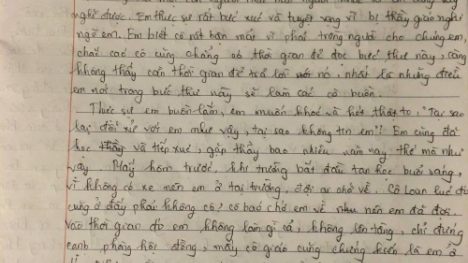 nghĩ được. Em thực sự rất bức xúc và tuyệt vọng vì bị thầy giáo nghi
ngờ em. Em biết cô rất bận mải vì phải trông người cho chúng em,
chắc các cô cũng chẳng có thời gian để đọc bức thư này, cũng
không thấy cần thời gian để trả lời với nó, nhất là những điều
em nói trong bức thư này sẽ làm các cô buồn.
Thực sự em buồn lắm, em muốn khóc và hét thật to: "Tại sao
lại đối xử với em như vậy, tại sao không tin em". Em cũng đã
học và tiếp xúc, gặp thầy bao nhiêu năm nay thế mà như
vậy. Mấy hôm trước, khi trường bắt đầu tan học buổi sáng,
vì không có xe nên em ở tại trường, đợi ai chở về. Cô Loan lúc đó
cũng ở đấy phải không cô? cô bảo chở em về nên em đã đợi.
vào thời gian đó em không làm gì cả, không lên tầng, chỉ đứng
cạnh phòng hội đồng, mấy cô giáo cũng chứng kiến là em ở